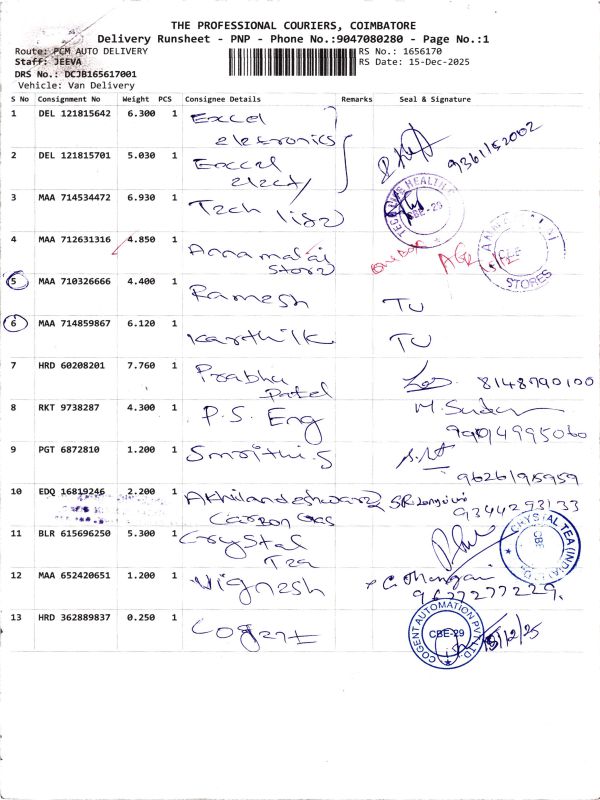 THE PROFESSIONAL COURIERS, COIMBATORE
Delivery Runsheet - PNP - Phone No.:9047080280 - Page No.:1
Route: PCM AUTO DELIVERY RS No.: 1656170
Staff: JEEVA RS Date: 15-Dec-2025
DRS No.: DCJB165617001
Vehicle: Van Delivery
S No Consignment No Weight PCS Consignee Details Remarks Seal & Signature
1 DEL 121815642 6.300 1 Excel
elektronics
2 DEL 121815701 5.030 1 Excel
9361152002
3 MAA 714534472 6.930 1 Tech
CBE-29
4 MAA 712631316 4.850 1 Annamalai
Store
STORES
5 MAA 710326666 4.400 1 Ramesh TU
6 MAA 714859867 6.120 1 Karthik TU
7 HRD 60208201 7.760 1 Prabhu
Patel 8148790100
8 RKT 9738287 4.300 1 P.S. Eng
9 PGT 6872810 1.200 1 Smrithi.S
9626195959
10 EDQ 16819246 2.200 1 Akhilandeshwari
Carbon Gas 9344293133
11 BLR 615696250 5.300 1 Crystal
Tea
CRYSTAL TEA (INDIA)
12 MAA 652420651 1.200 1 Vignesh
9677277229.
13 HRD 362889837 0.250 1 Cogent
COGENT AUTOMATION PVT LTD.
CBE-29
15/12/25